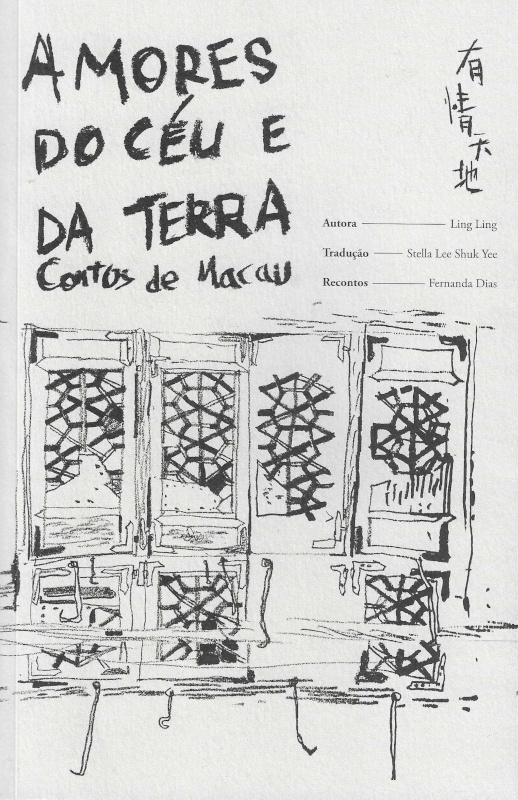 AMORES
DO CÉU E
DA TERRA
Contos de Macau
有情天地
Autora Ling Ling
Tradução Stella Lee Shuk Yee
Recontos Fernanda Dias